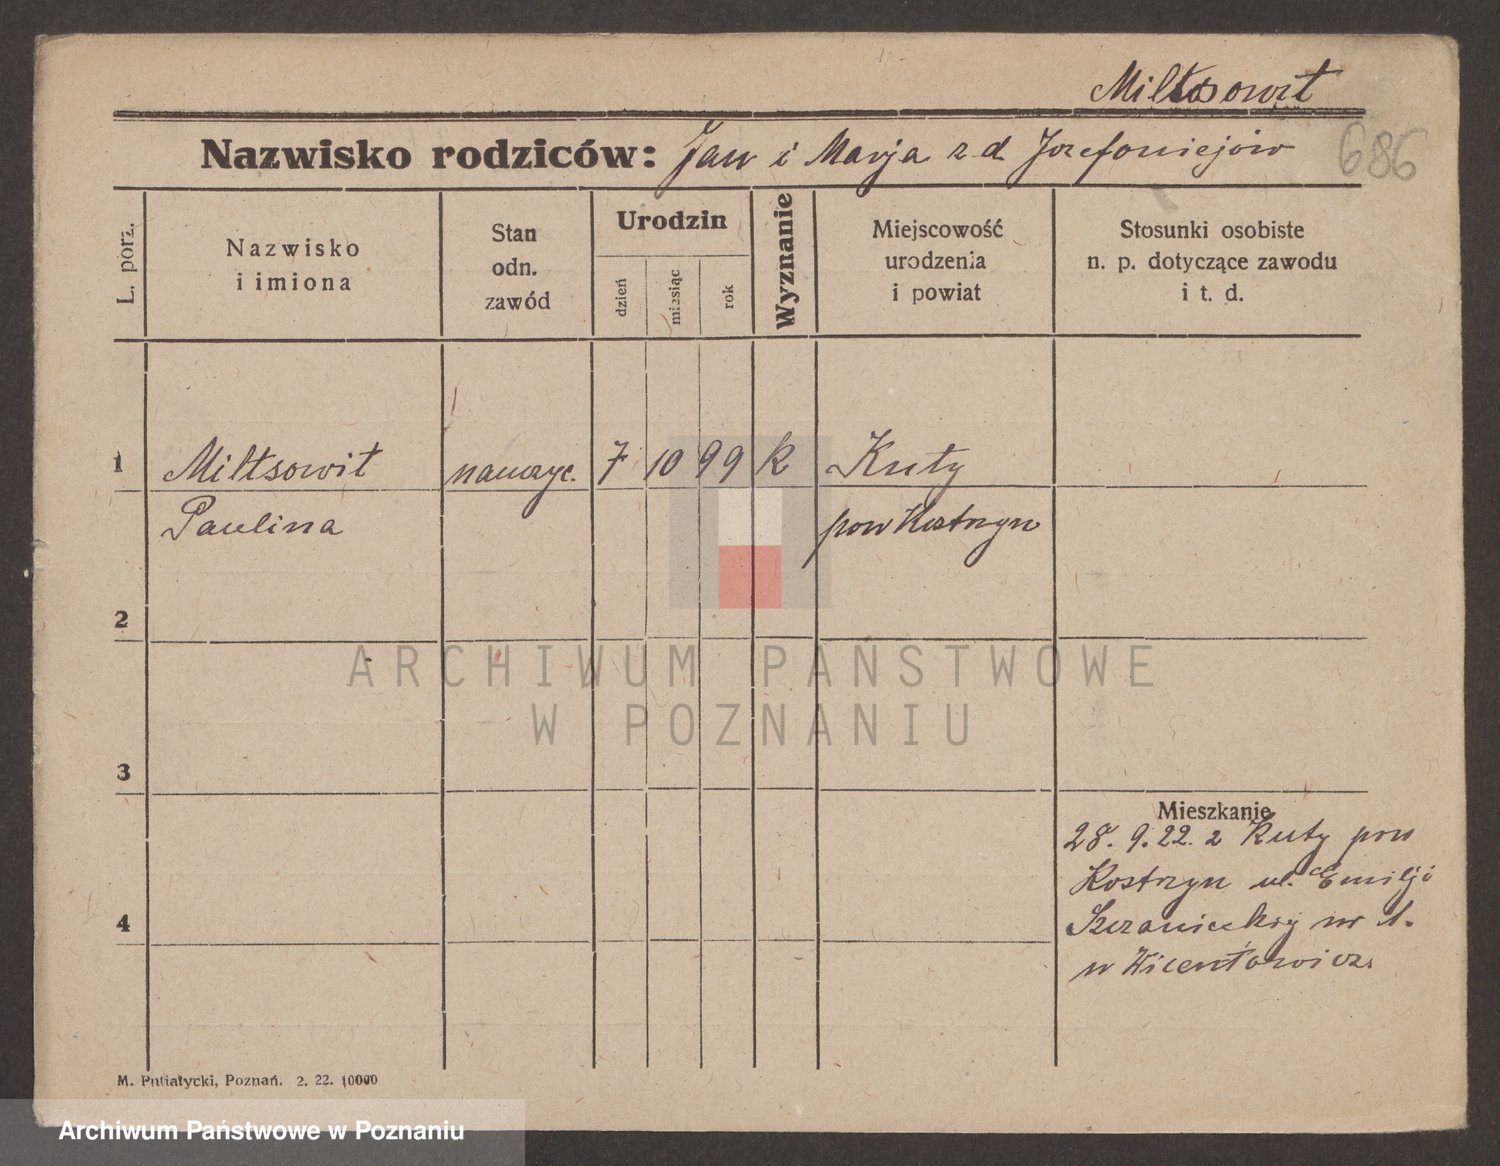 Miltsowit
Nazwisko rodziców: Jan i Marja z d. Jozefowiejów
686
L. porz.
Nazwisko i imiona
Stan odn. zawód
Urodzin
dzień
miesiąc
rok
Wyznanie
Miejscowość urodzenia i powiat
Stosunki osobiste n. p. dotyczące zawodu i t. d.
1 Miltsowit nauczyc. 7 10 99 k Kuty
Paulina pow Kostrzyn
2
3
Mieszkanie
28. 9. 22. z Kuty pow
Kostrzyn ul. Emilji
4
Sczanieckiej nr 1.
w Wicentowicz.
M. Putiatycki, Poznań. 2. 22. 10000
ARCHIWUM PAŃSTWOWE
W POZNANIU
Archiwum Państwowe w Poznaniu